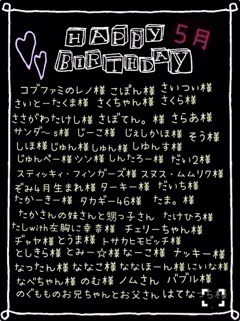 HAPPY 5月
BIRTHDAY
コブファミのレノ様 こぽん様 さいつい様
さいとーたくま様 さくちゃん様 さくら様
ささがわたけし様 さぼてん。様 さらあ様
サンダ〜s様 じーこ様 じぇしかほ様 そう様
しほ様 じゅん様 しゅん様 しゅんす様
じゅんぺー様 シン様 しんたろー様 だい2様
スティッキィ・フィンガーズ様 スヌス・ムムリク様
ぞみ4月生まれ様 ターキー様 だいち様
たかーきー様 タカギー46様 たま。様
たかさんの妹さんと甥っ子さん たけひろ様
たしwith左胸に幸奈様 チェリーちゃん様
ヂャヤ様 とうま様 トサカヒモビッチ様
としきら様 とみー☆様 なーこ様 ナッキー様
なったん様 ななこ様 ななほーん様 にいな様
なべちゃん様 のむ様 ノムさん バブル様
のぐもものお兄ちゃんとお父さん はてな